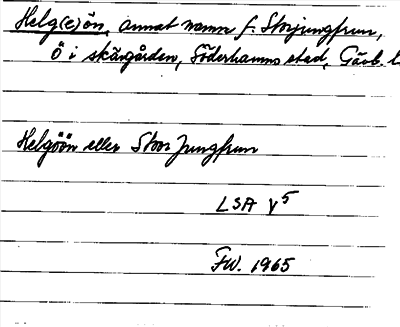 Helg(e)ön, annat namn f. Storjungfrun,
Ö i skärgården, Söderhamns stad, Gävb. l
Helgöön eller Stoor Jungfrun
LSA V5
FW. 1965